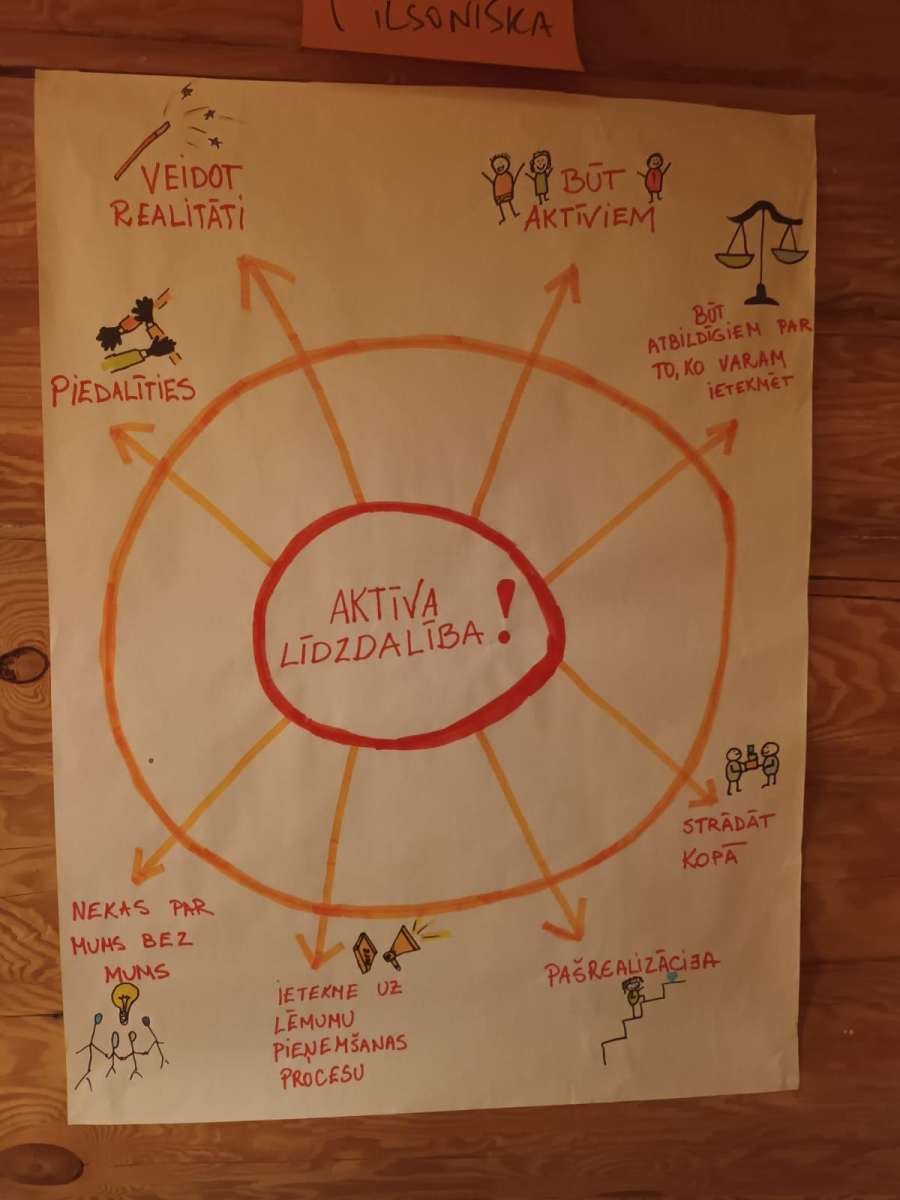 PILSONISKA
VEIDOT
REALITĀTI
BŪT
AKTĪVIEM
BŪT
ATBILDĪGIEM PAR
TO, KO VARAM
IETEKMĒT
PIEDALĪTIES
AKTĪVA
LĪDZDALĪBA!
STRĀDĀT
KOPĀ
PAŠREALIZĀCIJA
IETEKME UZ
LĒMUMU
PIEŅEMŠANAS
PROCESU
NEKAS PAR
MUMS BEZ
MUMS